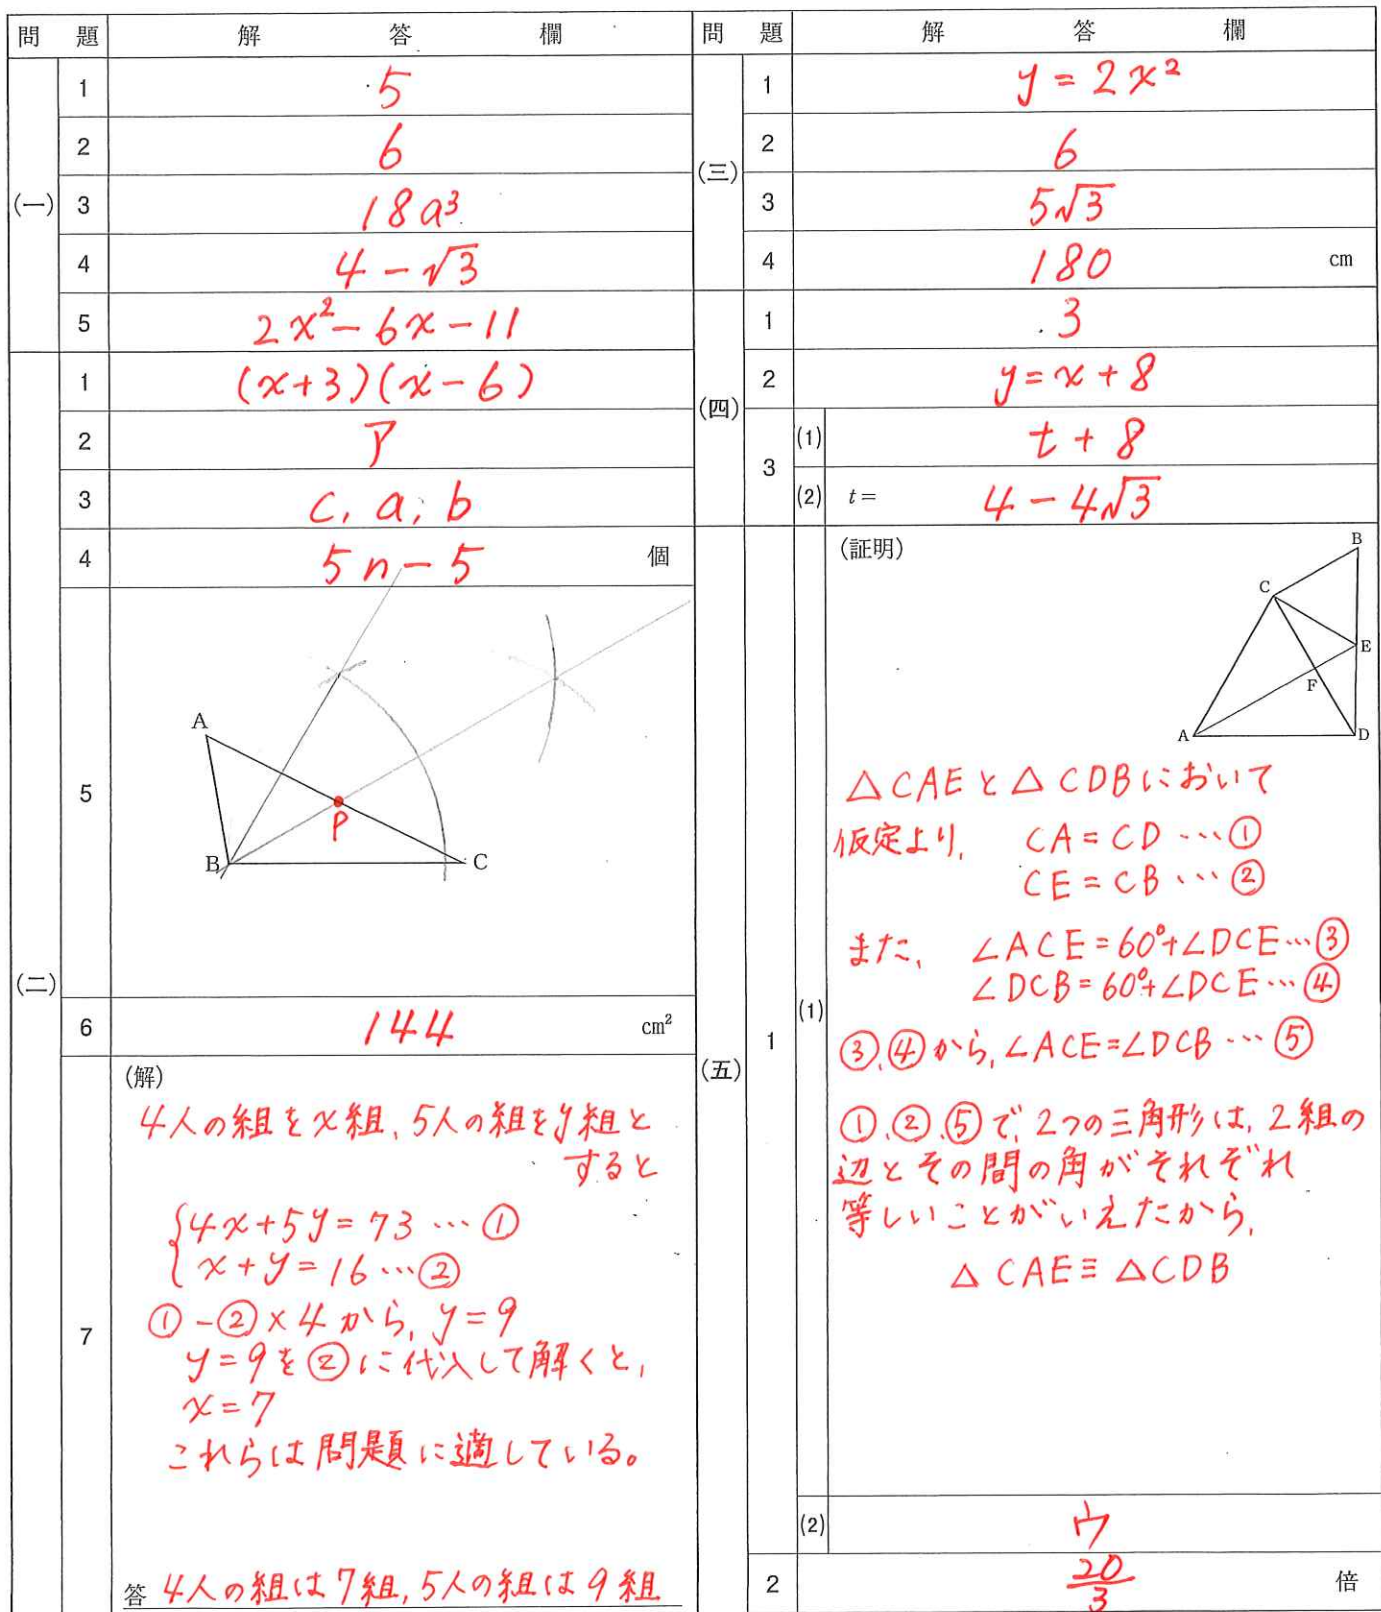 問 題 解 答 欄
(一) 1 5
2 6
3 18a³
4 4-√3
5 2x²-6x-11
(二) 1 (x+3)(x-6)
2 ア
3 c, a, b
4 5n-5 個
5 A
B
C
P
6 144 cm²
7 (解)
4人の組をx組、5人の組をy組と
すると
4x+5y=73 …①
x+y=16 …②
①-②×4から、y=9
y=9を②に代入して解くと、
x=7
これらは問題に適している。
答 4人の組は7組、5人の組は9組
問 題 解 答 欄
(三) 1 y=2x²
2 6
3 5√3
4 180 cm
(四) 1 3
2 y=x+8
3 (1) t+8
(2) t= 4-4√3
(五) 1 (1) (証明)
B
C
E
F
A
D
△CAEと△CDBにおいて
仮定より、 CA=CD …①
CE=CB …②
また、 ∠ACE=60°+∠DCE…③
∠DCB=60°+∠DCE…④
③、④から、∠ACE=∠DCB …⑤
①、②、⑤で、2つの三角形は、2組の
辺とその間の角がそれぞれ
等しいことがいえたから、
△CAE≡△CDB
(2) ウ
2 20/3 倍